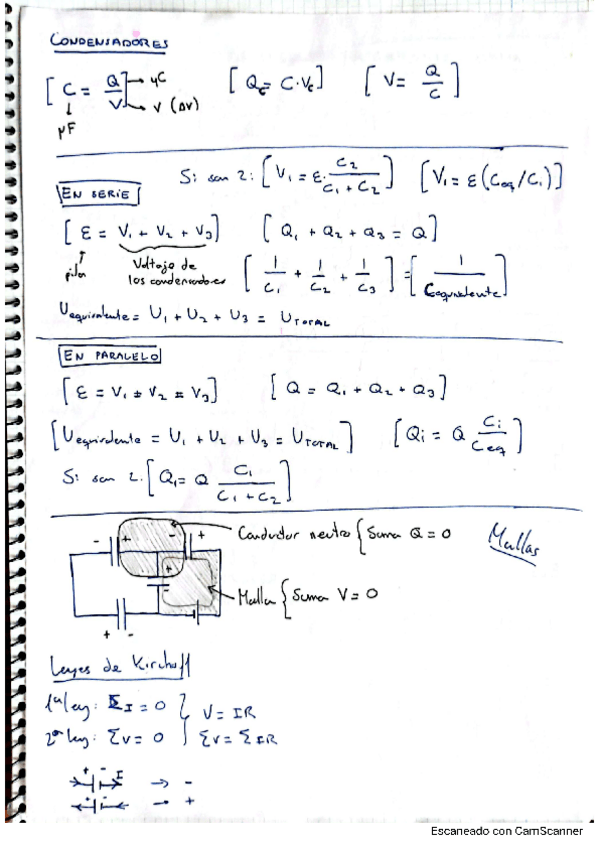 CONDENSADORES
[C = Q/V] → μC → V (ΔV) ↓ μF [Qc = C·Vc] [V = Q/C]
Si son 2: [V₁ = ε · C₂/(C₁ + C₂)] [V₁ = ε (Ceq/C₁)]
EN SERIE
[ε = V₁ + V₂ + V₃] [Q₁ + Q₂ + Q₃ = Q]
pilas Voltaje de los condensadores [1/C₁ + 1/C₂ + 1/C₃] = [1/Cequivalente]
Uequivalente = U₁ + U₂ + U₃ = UTOTAL
EN PARALELO
[ε = V₁ = V₂ = V₃] [Q = Q₁ + Q₂ + Q₃]
[Uequivalente = U₁ + U₂ + U₃ = UTOTAL] [Qi = Q Ci/Ceq]
Si son 2: [Q₁ = Q C₁/(C₁ + C₂)]
- + - + Conductor neutro { Suma Q = 0 Mallas
+ - Malla { Suma V = 0
+ -
Leyes de Kirchoff
1ª ley: ΣI = 0 } V = IR
2ª ley: ΣV = 0 } ΣV = ΣIR
+ - I → -
+ - → +
Escaneado con CamScanner